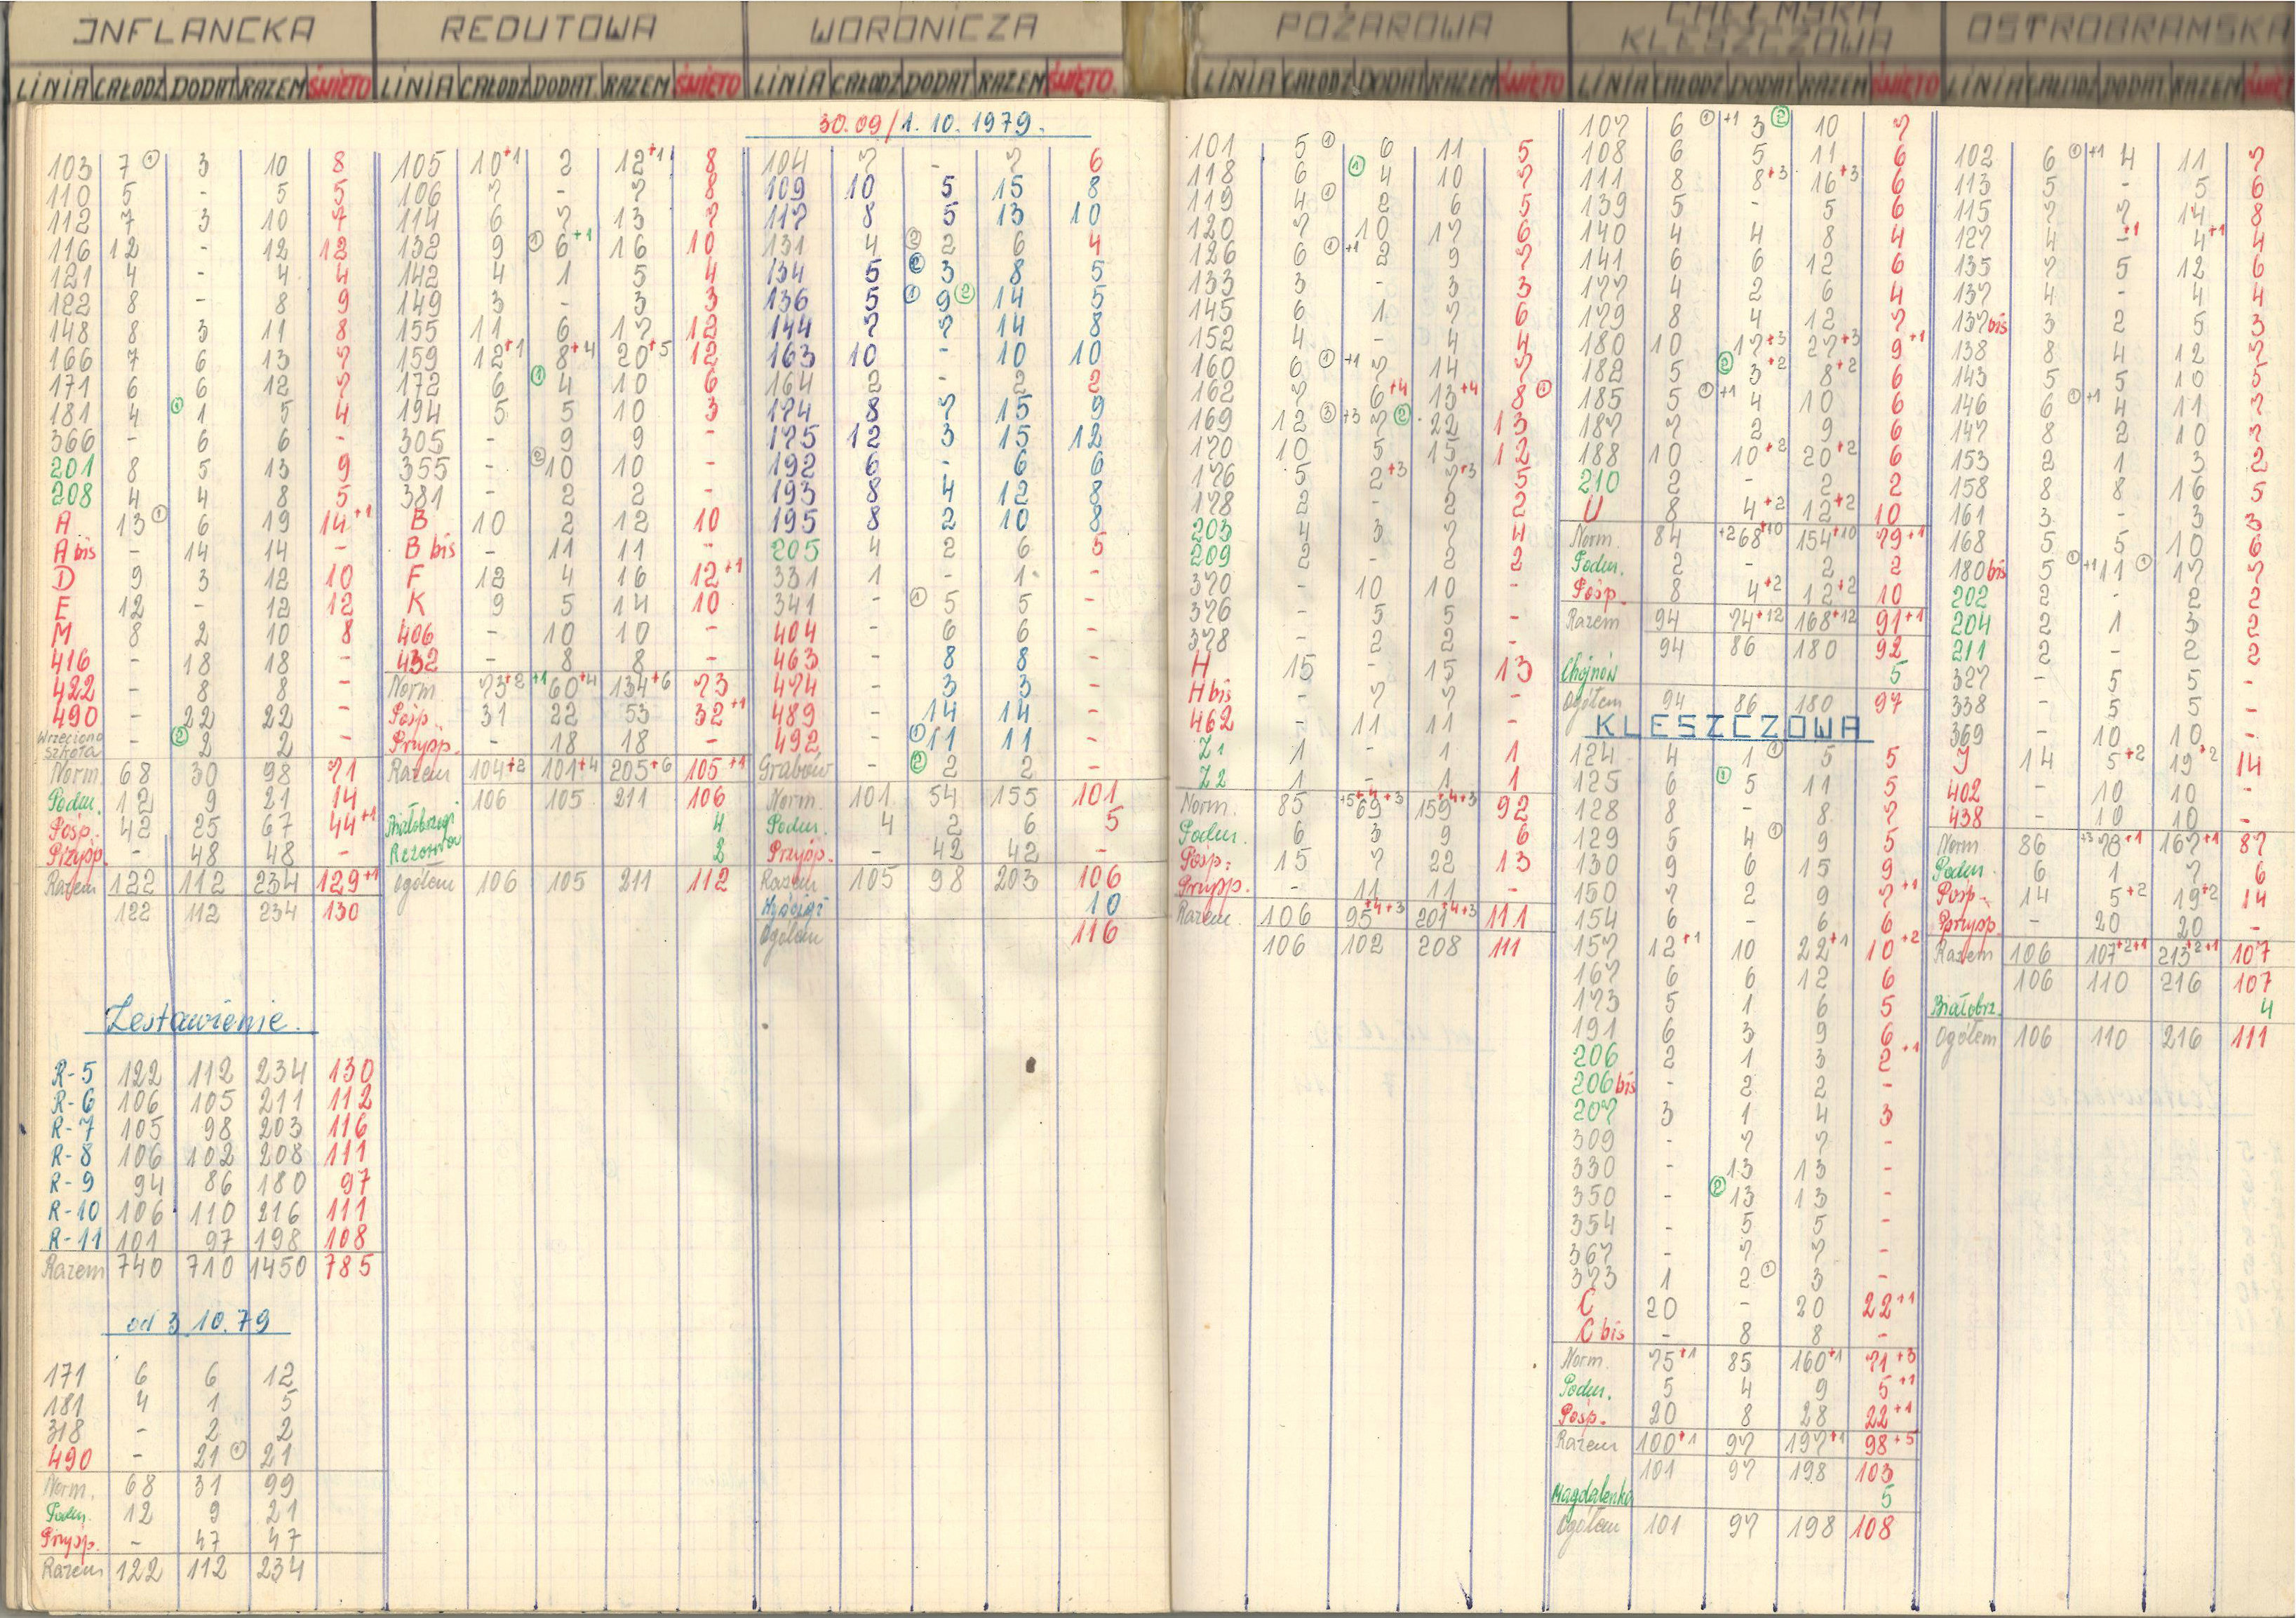 INFLANCKA
LINIA CAŁODZ DODAT RAZEM ŚWIĘTO
103 7 ① 3 10 8
110 5 - 5 5
112 7 3 10 7
116 12 - 12 12
121 4 - 4 4
122 8 - 8 9
148 8 3 11 8
166 7 6 13 7
171 6 6 12 7
181 4 ① 1 5 4
366 - 6 6 -
201 8 5 13 9
208 4 4 8 5
A 13 ① 6 19 14+1
A bis - 14 14 -
D 9 3 12 10
E 12 - 12 12
M 8 2 10 8
416 - 18 18 -
422 - 8 8 -
490 - 22 22 -
Wrzeciono szkoła - ② 2 2 -
Norm. 68 30 98 71
Podm. 12 9 21 14
Posp. 42 25 67 44+1
Przysp. - 48 48 -
Razem 122 112 234 129+1
122 112 234 130
Zestawienie.
R-5 122 112 234 130
R-6 106 105 211 112
R-7 105 98 203 116
R-8 106 102 208 111
R-9 94 86 180 97
R-10 106 110 216 111
R-11 101 97 198 108
Razem 740 710 1450 785
od 3.10.79
171 6 6 12
181 4 1 5
318 - 2 2
490 - 21 ① 21
Norm. 68 31 99
Podm. 12 9 21
Przysp. - 47 47
Razem 122 112 234
REDUTOWA
LINIA CAŁODZ DODAT RAZEM ŚWIĘTO
105 10+1 2 12+1 8
106 7 - 7 8
114 6 7 13 7
132 9 ① 6+1 16 10
142 4 1 5 4
149 3 - 3 3
155 11 6 17 12
159 12+1 8+4 20+5 12
172 6 ① 4 10 6
194 5 5 10 3
305 - 9 9 -
355 - ② 10 10 -
381 - 2 2 -
B 10 2 12 10
B bis - 11 11 -
F 12 4 16 12+1
K 9 5 14 10
406 - 10 10 -
432 - 8 8 -
Norm 73+2 +1 60+4 134+6 73
Posp. 31 22 53 32+1
Przysp. - 18 18 -
Razem 104+2 101+4 205+6 105+1
106 105 211 106
Białobrzegi 4
Rezerwa 2
Ogółem 106 105 211 112
WORONICZA
LINIA CAŁODZ DODAT RAZEM ŚWIĘTO.
30.09/1.10.1979.
104 7 - 7 6
109 10 5 15 8
117 8 5 13 10
131 4 ② 2 6 4
134 5 ② 3 8 5
136 5 ① 9 ② 14 5
144 7 7 14 8
163 10 - 10 10
164 2 - 2 2
174 8 7 15 9
175 12 3 15 12
192 6 - 6 6
193 8 4 12 8
195 8 2 10 8
205 4 2 6 5
331 1 - 1 -
341 - ① 5 5 -
404 - 6 6 -
463 - 8 8 -
474 - 3 3 -
489 - 14 14 -
492 - ① 11 11 -
Grabów - ② 2 2 -
Norm. 101 54 155 101
Podm. 4 2 6 5
Przysp. - 42 42 -
Razem 105 98 203 106
Wyścigi 10
Ogółem 116
POŻAROWA
LINIA CAŁODZ DODAT RAZEM ŚWIĘTO
101 5 ① 6 11 5
118 6 ① 4 10 7
119 4 ① 2 6 5
120 7 10 17 6
126 6 ① +1 2 9 7
133 3 - 3 3
145 6 1 7 6
152 4 - 4 4
160 6 ① +1 7 14 7
162 7 6+4 13+4 8 ①
169 12 ③ +3 7 ② 22 13
170 10 5 15 12
176 5 2+3 7+3 5
178 2 - 2 2
203 4 3 7 4
209 2 - 2 2
370 - 10 10 -
376 - 5 5 -
378 - 2 2 -
H 15 - 15 13
H bis - 7 7 -
462 - 11 11 -
Z1 1 - 1 1
Z2 1 - 1 1
Norm. 85 +5 69+4+3 159+4+3 92
Podm. 6 3 9 6
Posp. 15 7 22 13
Przysp. - 11 11 -
Razem 106 95+4+3 201+4+3 111
106 102 208 111
CHEŁMSKA
KLESZCZOWA
LINIA CAŁODZ DODAT RAZEM ŚWIĘTO
107 6 ① +1 3 ② 10 7
108 6 5 11 6
111 8 8+3 16+3 6
139 5 - 5 6
140 4 4 8 4
141 6 6 12 6
177 4 2 6 4
179 8 4 12 7
180 10 17+3 27+3 9+1
182 5 ② 3+2 8+2 6
185 5 ① +1 4 10 6
187 7 2 9 6
188 10 10+2 20+2 6
210 2 - 2 2
U 8 4+2 12+2 10
Norm. 84 +2 68+10 154+10 79+1
Podm. 2 - 2 2
Posp. 8 4+2 12+2 10
Razem 94 74+12 168+12 91+1
94 86 180 92
Chojnów 5
Ogółem 94 86 180 97
KLESZCZOWA
124 4 1 ① 5 5
125 6 ① 5 11 5
128 8 - 8 7
129 5 4 ① 9 5
130 9 6 15 9
150 7 2 9 7+1
154 6 - 6 6
157 12+1 10 22+1 10+2
167 6 6 12 6
173 5 1 6 5
191 6 3 9 6
206 2 1 3 2+1
206 bis - 2 2 -
207 3 1 4 3
309 - 7 7 -
330 - 13 13 -
350 - ② 13 13 -
354 - 5 5 -
367 - 7 7 -
373 1 2 ① 3 -
C 20 - 20 22+1
C bis - 8 8 -
Norm. 75+1 85 160+1 71+3
Podm. 5 4 9 5+1
Posp. 20 8 28 22+1
Razem 100+1 97 197+1 98+5
101 97 198 103
Magdalenka 5
Ogółem 101 97 198 108
OSTROBRAMSKA
LINIA CAŁODZ DODAT RAZEM ŚWIĘTO
102 6 ① +1 4 11 7
113 5 - 5 6
115 7 7 14 8
127 4 -+1 4+1 4
135 7 5 12 6
137 4 - 4 4
137bis 3 2 5 3
138 8 4 12 7
143 5 5 10 5
146 6 ① +1 4 11 7
147 8 2 10 7
153 2 1 3 2
158 8 8 16 5
161 3 - 3 3
168 5 5 10 6
180bis 5 ① +1 11 ① 17 7
202 2 - 2 2
204 2 1 3 2
211 2 - 2 2
327 - 5 5 -
338 - 5 5 -
369 - 10 10 -
J 14 5+2 19+2 14
402 - 10 10 -
438 - 10 10 -
Norm 86 +3 78+1 167+1 87
Podm. 6 1 7 6
Posp. 14 5+2 19+2 14
Przysp. - 20 20 -
Razem 106 107+2+1 213+2+1 107
106 110 216 107
Białobrz. 4
Ogółem 106 110 216 111